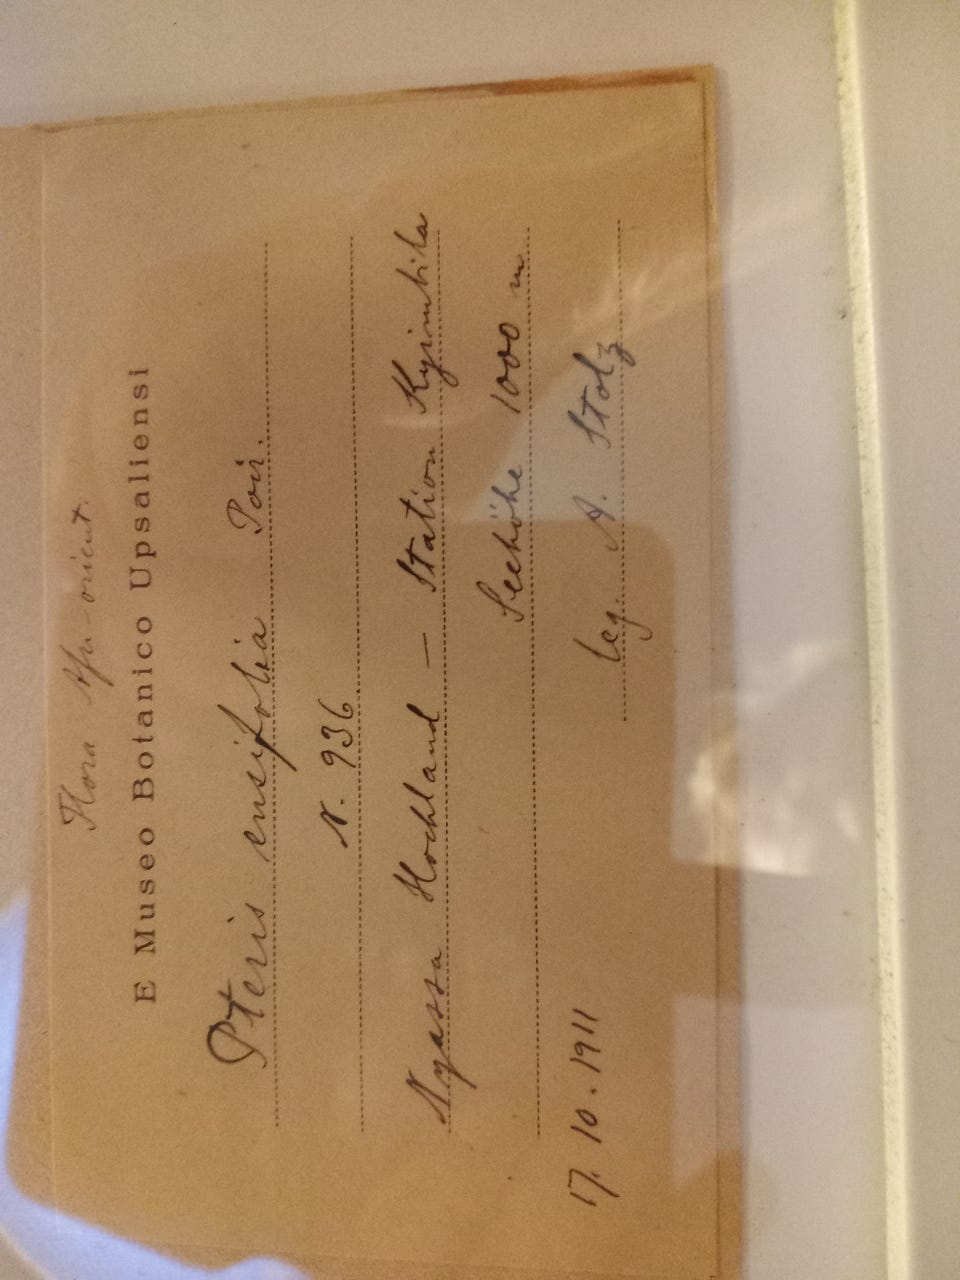 Flora Afr-orient.
E Museo Botanico Upsaliensi
Pteris ensifolia Poir.
N. 936
Nyassa Hochland – Station Kyimbila
Seehöhe 1000 m
17. 10. 1911 leg. A. Stolz